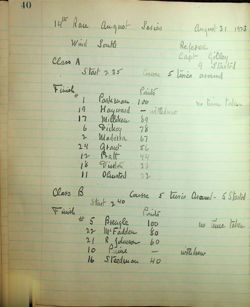 40
14th Race August Series August 31 1923
Wind South Referee
Capt. Gilley
Class A 9 Started
Start 2.35 Course 5 times around
Finish Points
# 1 100 no time taken
19 Hayward - withdrew
17 89
6 Dickey 78
2 67
24 Grant 56
12 Pratt 44
18 33
11 Olmsted 22
Class B Course 5 times around - 5 Started
Start 2 40
Finish Points
# 5 100 no time taken
22 McFadden 80
21 R. Johnson 60
10 - withdrew
16 Steedman 40